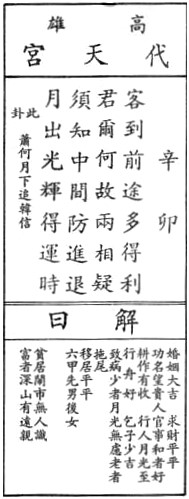 高雄
代天宮
辛卯
客到前途多得利
君爾何故兩相疑
須知中間防進退
月出光輝得運時
此卦
蕭何月下追韓信
解曰
婚姻大吉 求財平平
功名望貴人官事和者好
耕作有收 行人月光至
行舟好 乞子少吉
致病少者月光無慮老者
拖尾
移居平平
六甲先男後女
貧居鬧市無人識
富者深山有遠親